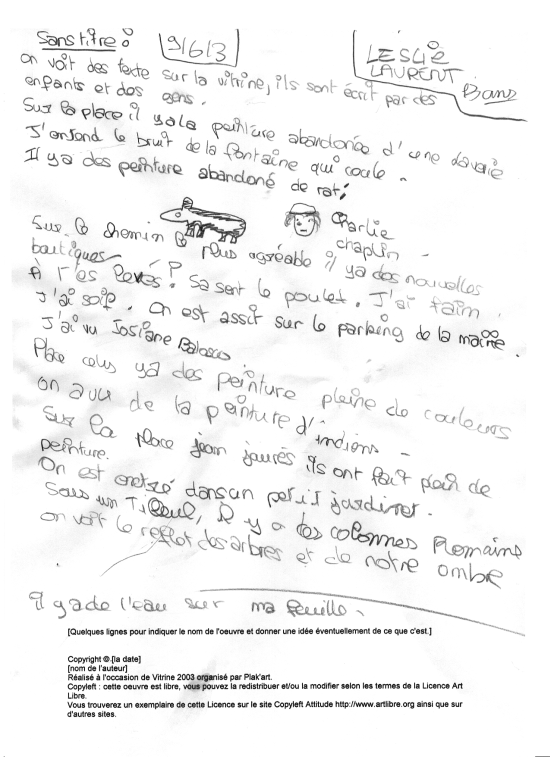 Sans titre :
9/6/3
LESLIE
LAURENT
13 ans
on voit des texte sur la vitrine, ils sont écrit par des
enfants et des gens.
Sur la place il ya la peinture abandonée d'une
J'entend le bruit de la fontaine qui coule.
Il ya des peinture abandoné de rat,
Charlie
chaplin -
Sur le chemin le plus agréable il ya des nouvelles
boutiques
A l'es levés? Sa sent le poulet. J'ai faim.
J'ai soif. On est assit sur le parking de la mairie.
J'ai vu Josiane Balasco
Place ya des peinture pleine de couleurs
on a vu de la peinture d'indiens -
Sur la place jean jaurés ils ont fait plein de
peinture.
On est dans un petit jardinet.
Sous un Tilleul, il y a des colonnes Romains
on voit le reflet des arbres et de notre ombre
il y a de l'eau sur ma feuille.
[Quelques lignes pour indiquer le nom de l'oeuvre et donner une idée éventuellement de ce que c'est.]
Copyright © [la date]
[nom de l'auteur]
Réalisé à l'occasion de Vitrine 2003 organisé par Plak'art.
Copyleft : cette oeuvre est libre, vous pouvez la redistribuer et/ou la modifier selon les termes de la Licence Art
Libre.
Vous trouverez un exemplaire de cette Licence sur le site Copyleft Attitude http://www.artlibre.org ainsi que sur
d'autres sites.